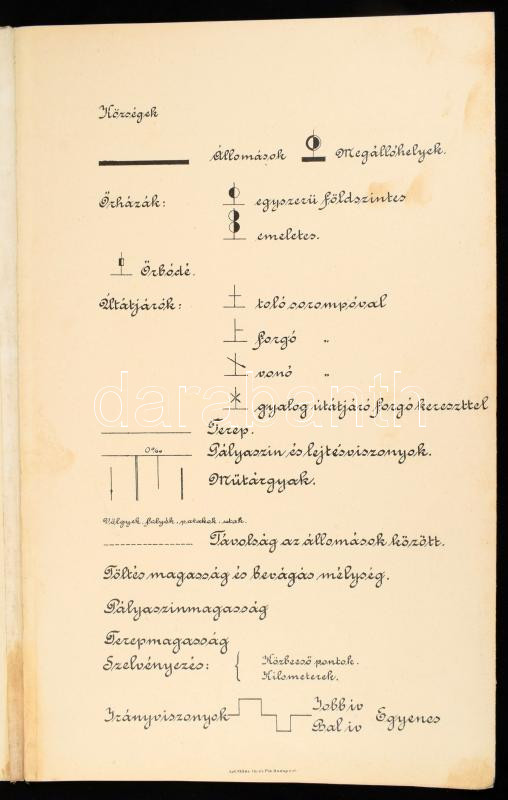 Községek
Állomások Megállóhelyek.
Őrházák: egyszerü földszintes
emeletes.
Őrbódé.
Útátjárók: toló sorompóval
forgó „
vonó „
gyalog útátjáró forgó kereszttel
Terep.
0‰
Pályaszin és lejtésviszonyok.
Műtárgyak.
Völgyek, folyók, patakok, utak.
Távolság az állomások között.
Töltés magasság és bevágás mélység.
Pályaszinmagasság
Terepmagasság
Szelvényezés: { Közbeeső pontok.
Kilometerek.
Irányviszonyok Jobb iv Egyenes
Bal iv
darabanth